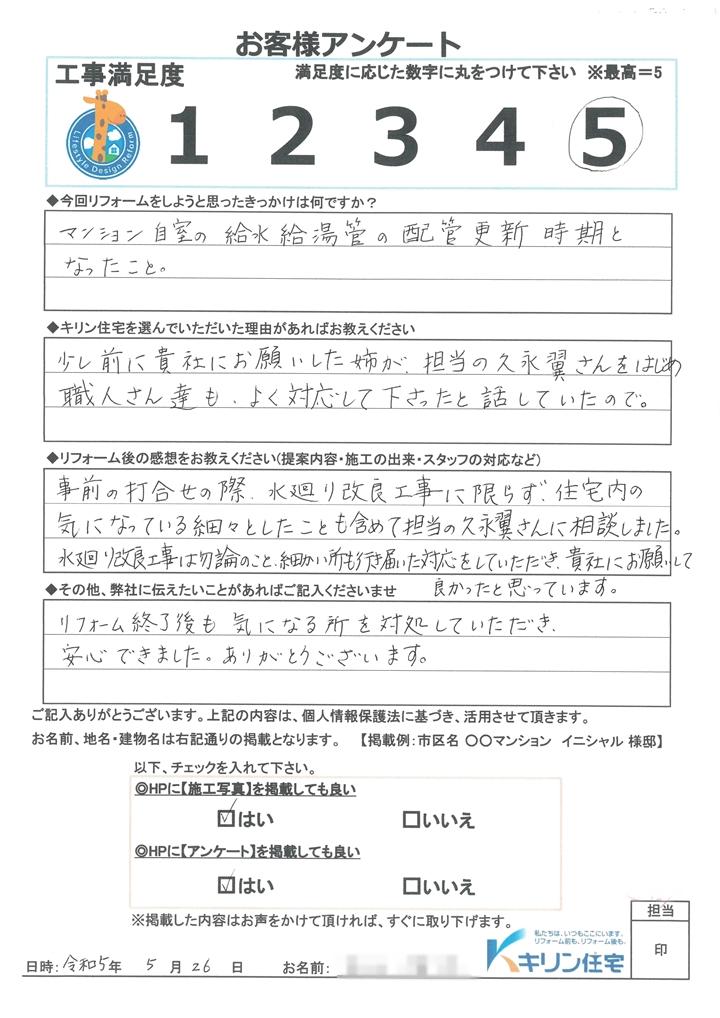 お客様アンケート
工事満足度
満足度に応じた数字に丸をつけて下さい ※最高＝5
Lifestyle Design Reform
1 2 3 4 5
◆今回リフォームをしようと思ったきっかけは何ですか？
マンション自室の給水給湯管の配管更新時期と
なったこと。
◆キリン住宅を選んでいただいた理由があればお教えください
少し前に貴社にお願いした姉が、担当の久永翼さんをはじめ
職人さん達も、よく対応して下さったと話していたので。
◆リフォーム後の感想をお教えください（提案内容・施工の出来・スタッフの対応など）
事前の打合せの際、水廻り改良工事に限らず、住宅内の
気になっている細々としたことも含めて担当の久永翼さんに相談しました。
水廻り改良工事は勿論のこと、細かい所も行き届いた対応をしていただき、貴社にお願いして
良かったと思っています。
◆その他、弊社に伝えたいことがあればご記入くださいませ
リフォーム終了後も気になる所を対処していただき、
安心できました。ありがとうございます。
ご記入ありがとうございます。上記の内容は、個人情報保護法に基づき、活用させて頂きます。
お名前、地名・建物名は右記通りの掲載となります。 【掲載例：市区名 〇〇マンション イニシャル 様邸】
以下、チェックを入れて下さい。
◎HPに【施工写真】を掲載しても良い
☑はい □いいえ
◎HPに【アンケート】を掲載しても良い
☑はい □いいえ
※掲載した内容はお声をかけて頂ければ、すぐに取り下げます。
担当
印
私たちは、いつもここにいます。
リフォーム前も、リフォーム後も。
キリン住宅
日時：令和5年 5月26日 お名前：